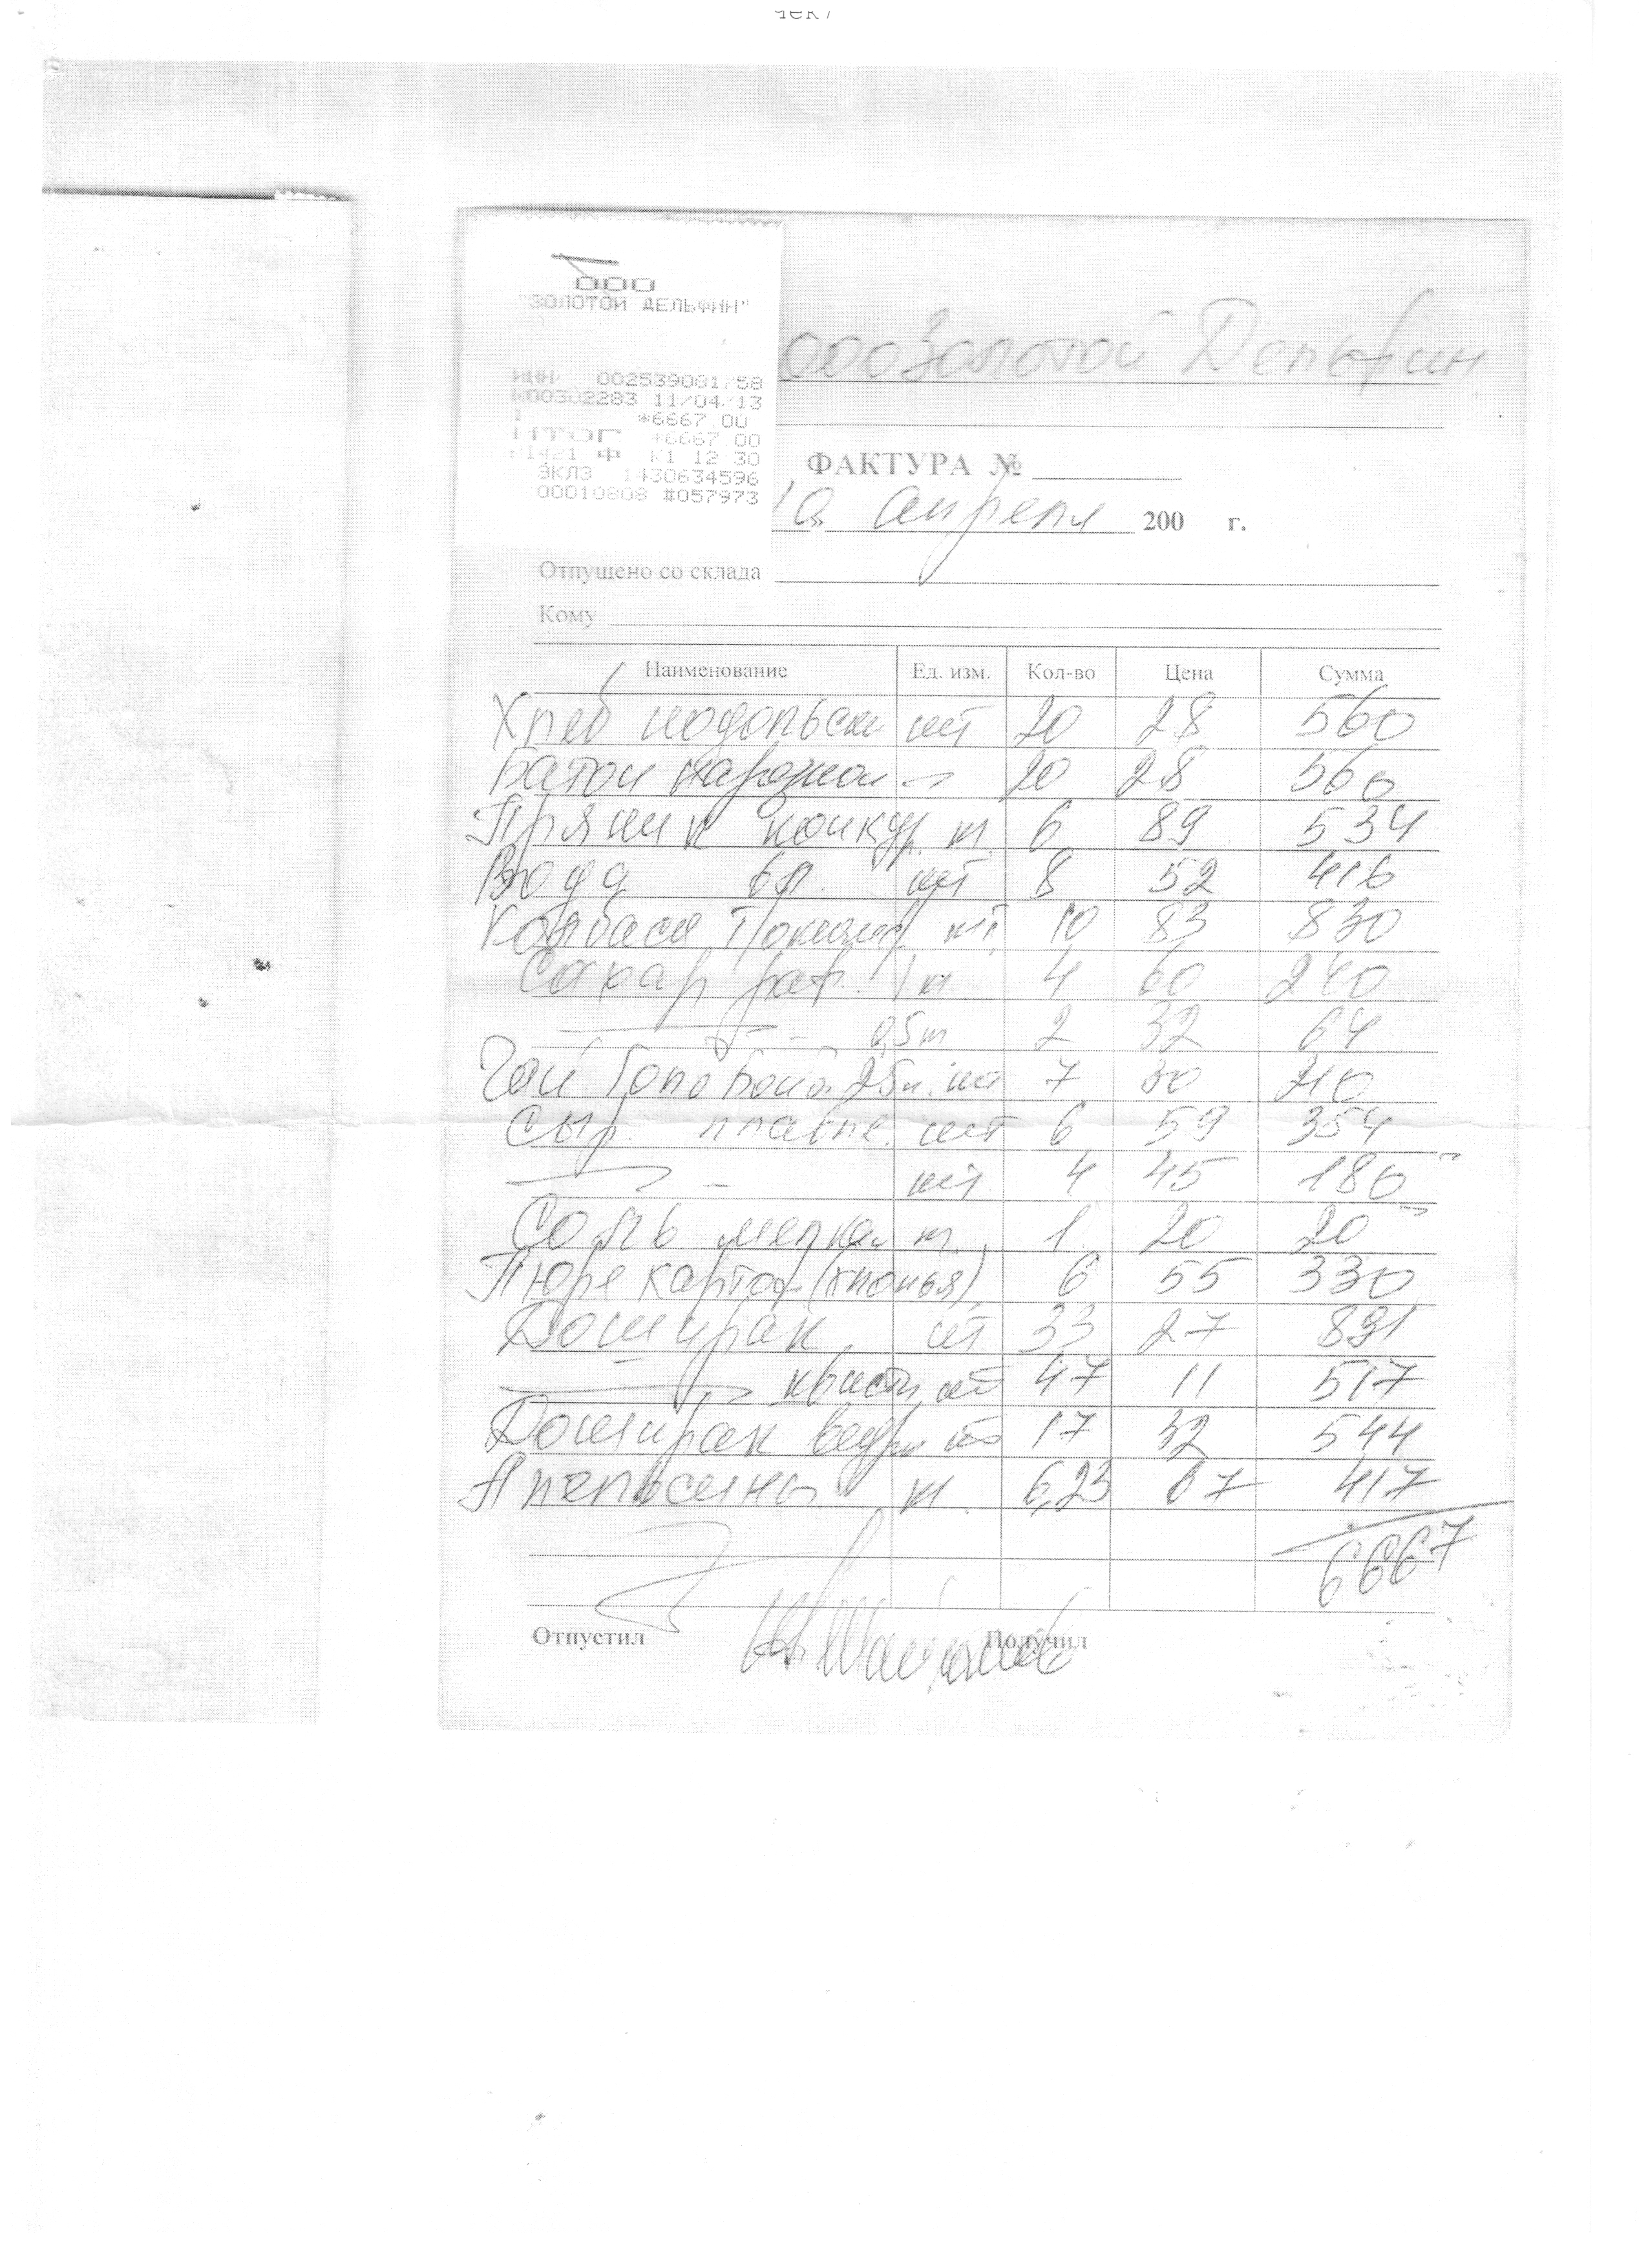 чек7
ООО
"ЗОЛОТОЙ ДЕЛЬФИН"
ООО Золотой Дельфин
ИНН 002539081758
№00302283 11/04/13
1 *6667.00
ИТОГ *6667.00
Ф К1 12:30
ЭКЛЗ 1430634596
00010808 #057973
ФАКТУРА №
апреля 200 г.
Отпущено со склада
Кому
Наименование Ед. изм. Кол-во Цена Сумма
Хлеб подольск шт 20 28 560
Батон 20 28 560
Пряник конкур. 6 89 534
Вода 6л. шт 8 52 416
Колбаса шт 10 83 830
Сахар раф. 1к 4 60 240
0,5 2 32 64
Чай 25п. шт 7 30 210
Сыр плавле. шт 6 59 354
шт 4 45 180
Соль мелкая 1 20 20
Пюре картоф (хлопья) 6 55 330
Доширак шт 33 27 891
квисти шт 47 11 517
Доширак ведро шт 17 32 544
Апельсины к 6,23 67 417
6667
Отпустил Получил